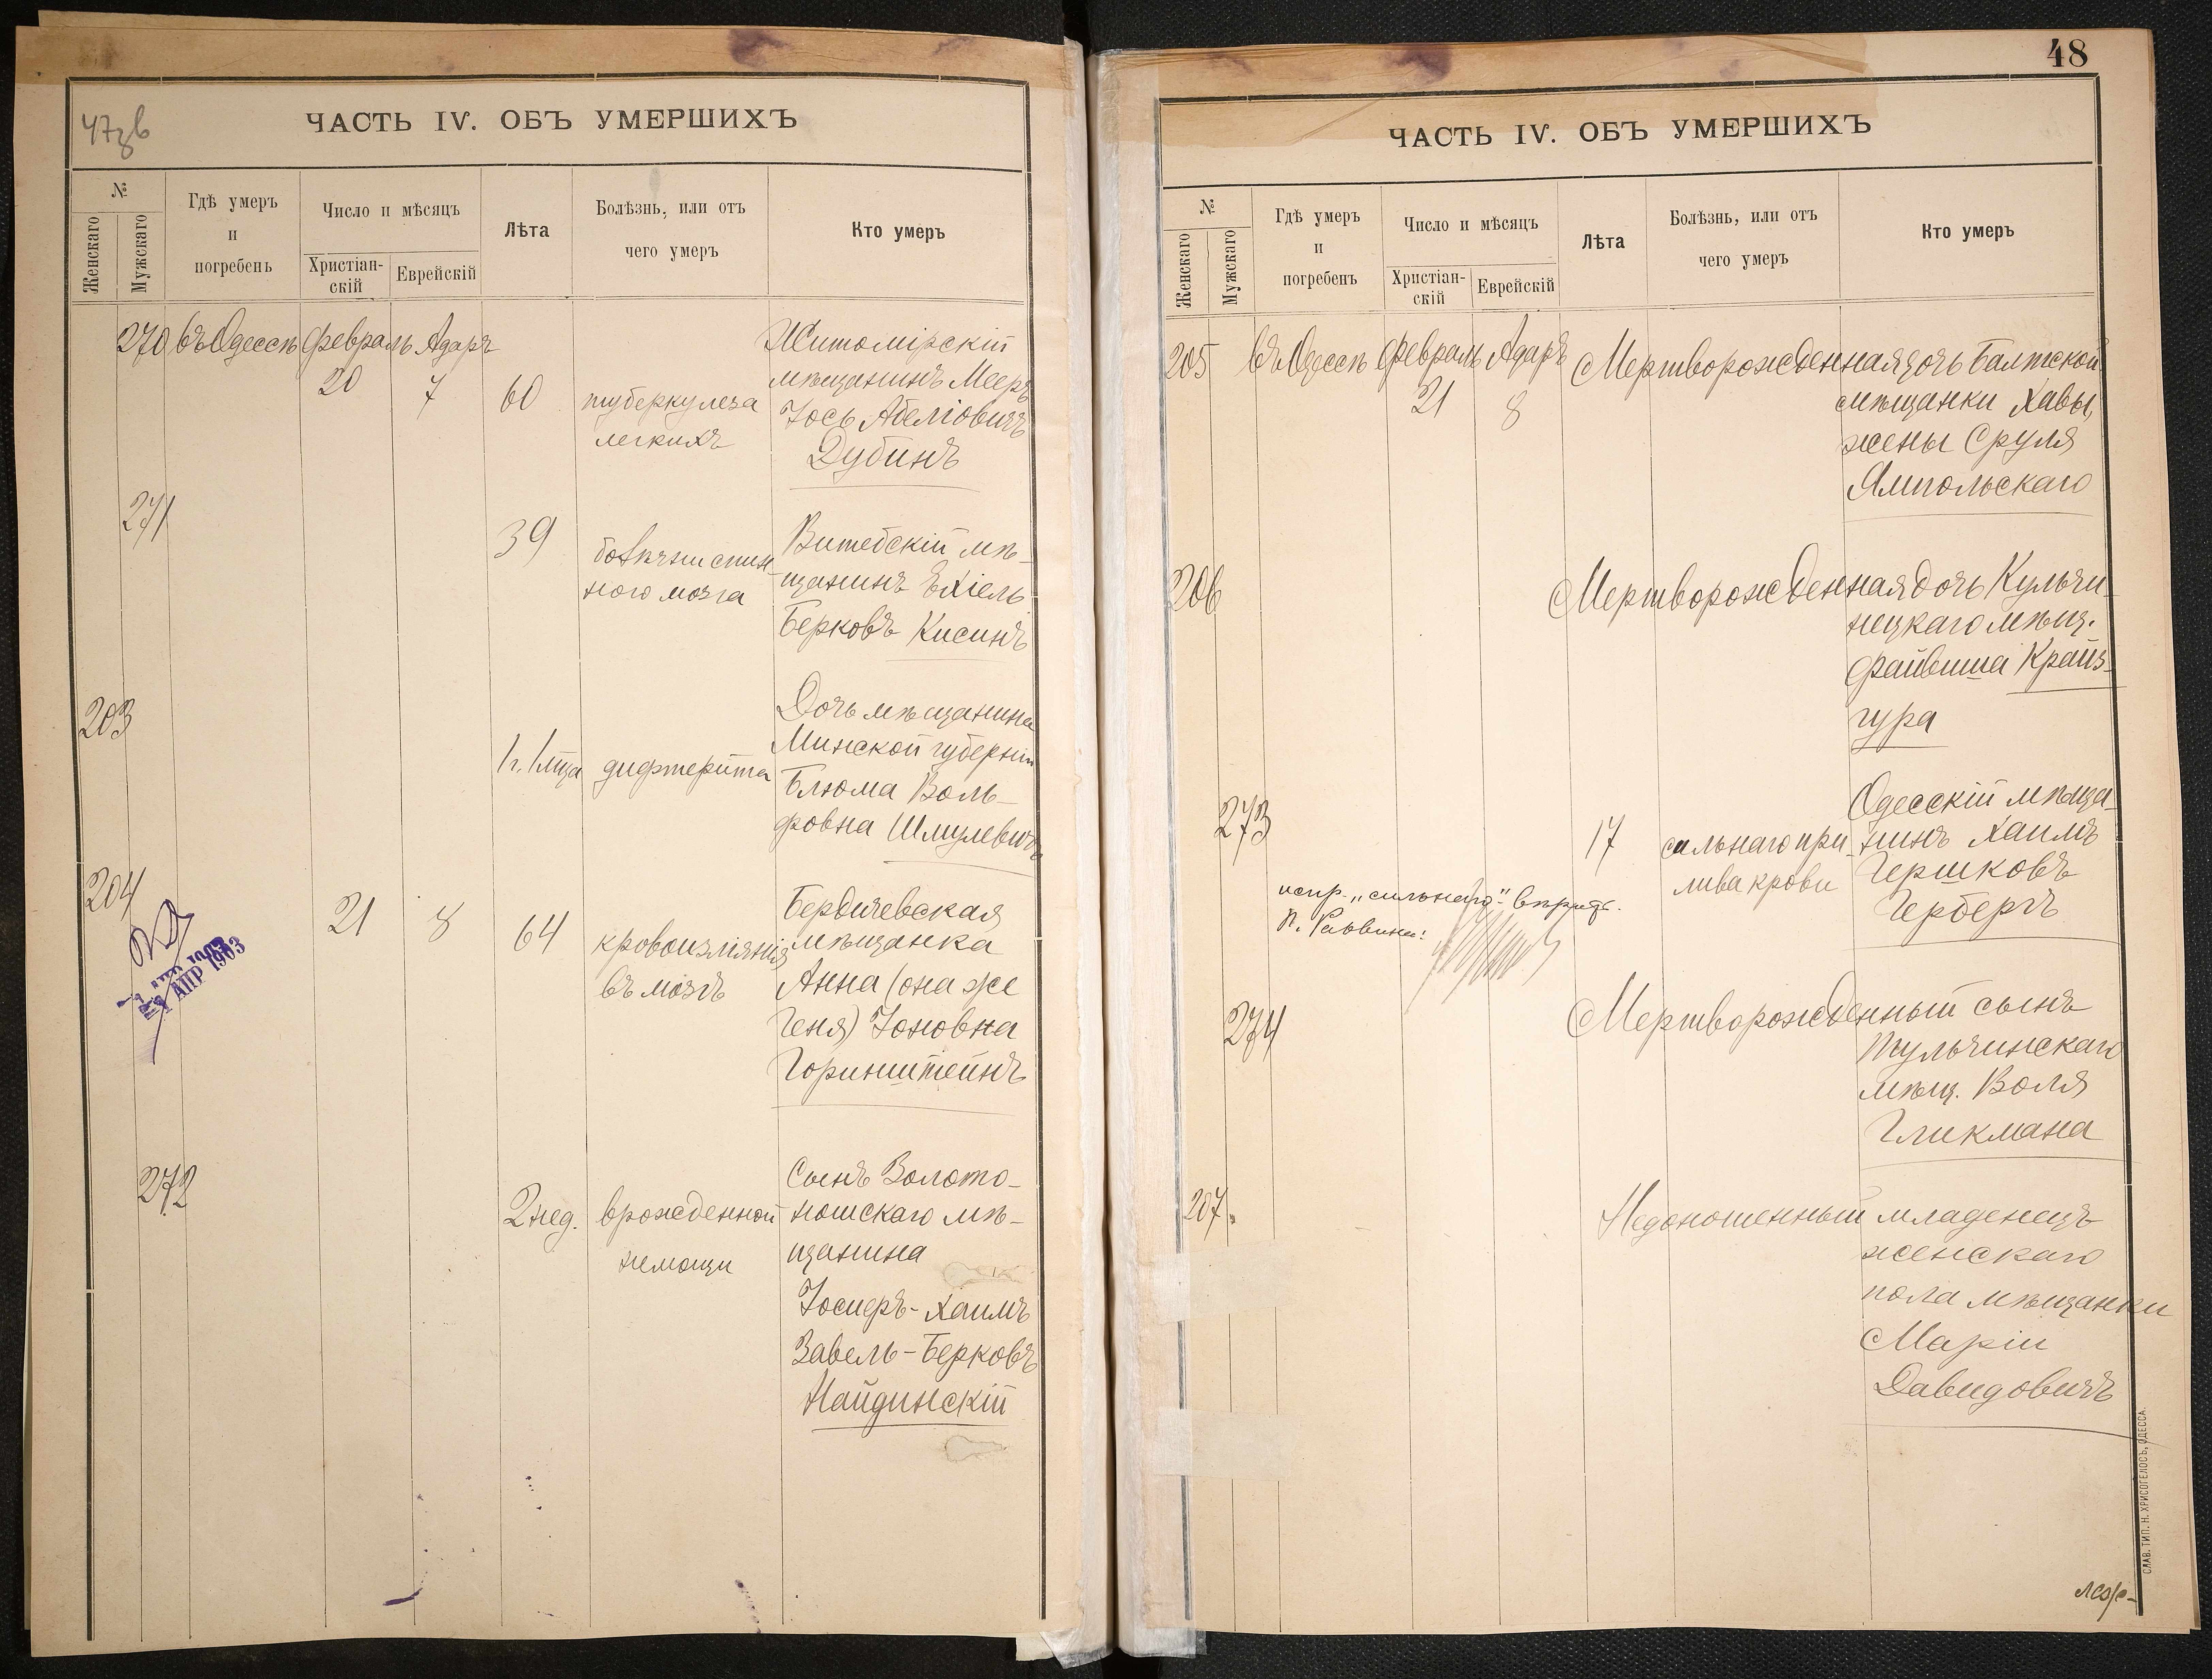 47зв
ЧАСТЬ IV. ОБЪ УМЕРШИХЪ
№
Женскаго
Мужскаго
Гдѣ умеръ
и
погребенъ
Число и мѣсяцъ
Христіан-
скій
Еврейскій
Лѣта
Болѣзнь, или отъ
чего умеръ
Кто умеръ
270 въ Одессѣ Февраль Адаръ
20 7 60
туберкулеза
легкихъ
Житомірскій
мѣщанинъ Мееръ
Іось Абеліовичъ
Дубинъ
271
39
болѣзни спин-
ного мозга
Витебскій мѣ-
щанинъ Ехіель
Берковъ Кисинъ
203
1 г. 1 мца
дифтерита
Дочь мѣщанина
Минской губерніи
Блюма Воль-
фовна Шмулевичъ
204
21 8 64
кровоизліянія
въ мозгъ
Бердичевская
мѣщанка
Анна (она же
Геня) Іоновна
Горинштейнъ
АПР 1903
272
2 нед.
врожденной
немощи
Сынъ Золото-
ношскаго мѣ-
щанина
Іосиеръ-Хаимъ
Завель-Берковъ
Найдинскій
48
ЧАСТЬ IV. ОБЪ УМЕРШИХЪ
№
Женскаго
Мужскаго
Гдѣ умеръ
и
погребенъ
Число и мѣсяцъ
Христіан-
скій
Еврейскій
Лѣта
Болѣзнь, или отъ
чего умеръ
Кто умеръ
205 въ Одессѣ Февраль Адаръ
21 8
Мертворожденная дочь Балтской
мѣщанки Хавы,
жены Сруля
Ямпольскаго
206
Мертворожденная дочь Кульчи-
нецкаго мѣщ.
Файвиша Крайз-
гура
273
17
сильнаго при-
лива крови
Одесскій мѣща-
нинъ Хаимъ
Гершковъ
Герберъ
испр. „сильнаго“ вѣрить.
П. Раввина:
274
Мертворожденный сынъ
Тульчинскаго
мѣщ. Воля
Гликмана
207.
Недоношенный младенецъ
женскаго
пола мѣщанки
Маріи
Давидовичъ
СЛАВ. ТИП. Н. ХРИСОГЕЛОСЪ, ОДЕССА.